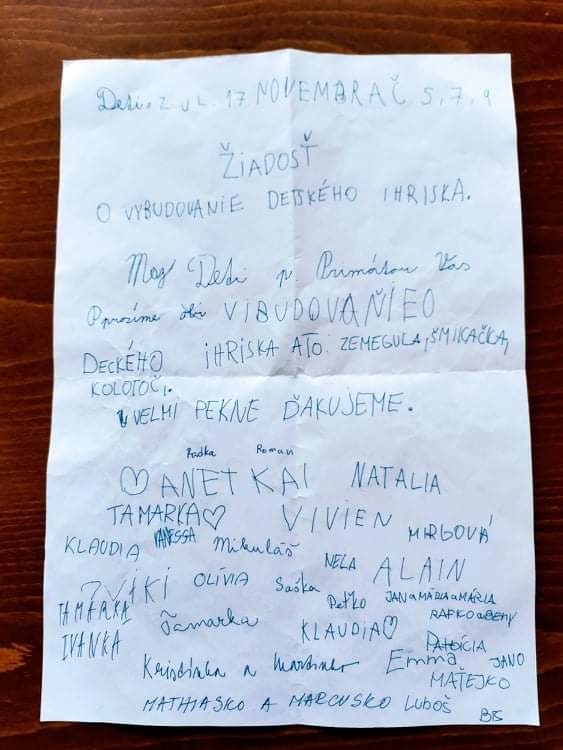 Deti z UL. 17 NOVEMBRA Č. 5, 7, 9
ŽIADOSŤ
O VYBUDOVANIE DETSKÉHO IHRISKA.
My Deti p. Primátor Vás
Pprosíme VIBUDOVAŇIEO
DECKÉHO IHRISKA ATO: ZEMEGULA, ŠMIKAČKA,
KOLOTOČ.
VEĽMI PEKNE ĎAKUJEME.
Radka Roman
ANETKA NATALIA
TAMARKA VIVIEN MIRGOVÁ
KLAUDIA VANESSA Mikuláš NELA ALAIN
VIKI OLÍVIA Saška Peťko JAN a MÁRIA a MÁRIA
TAMARKA Tamarka KLAUDIA RAFKO a BENY
IVANKA PATRÍCIA
Kristínka a Martinko Emma JANO
MAŤEJKO
MATHIASKO A MARCUSKO Luboš